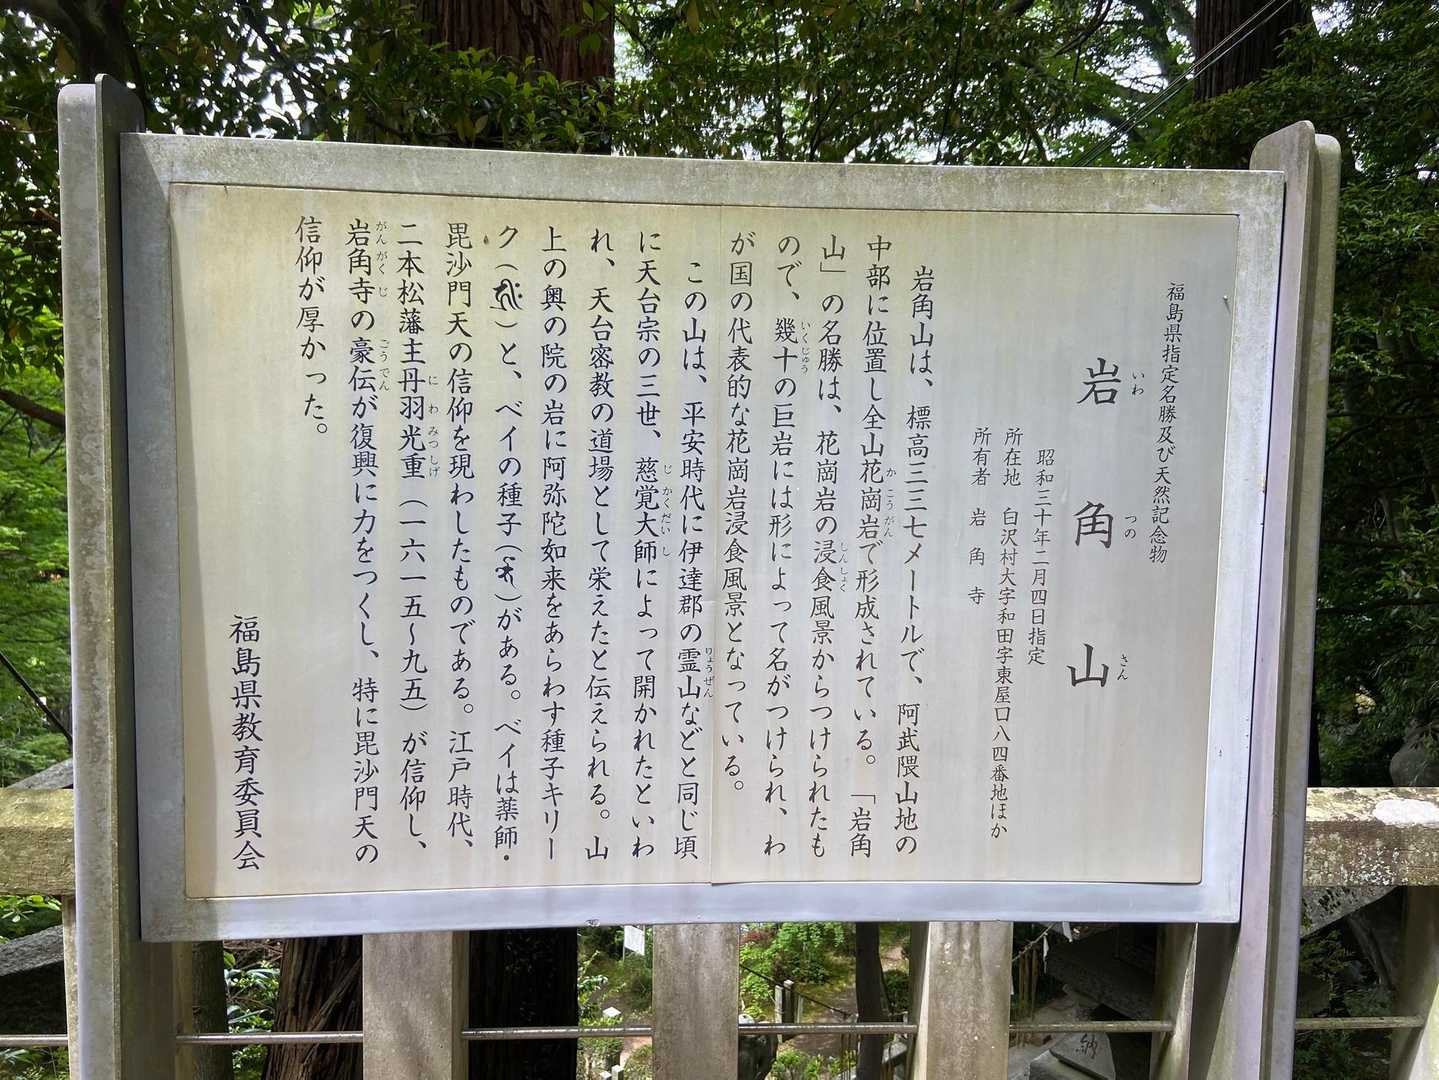 福島県指定名勝及び天然記念物
岩角山
いわ つの さん
昭和三十年二月四日指定
所在地 白沢村大字和田字東屋口八四番地ほか
所有者 岩角寺
岩角山は、標高三三七メートルで、阿武隈山地の
中部に位置し全山花崗岩で形成されている。「岩角
か こうがん
山」の名勝は、花崗岩の浸食風景からつけられたも
しんしょく
ので、幾十の巨岩には形によって名がつけられ、わ
いくじゅう
が国の代表的な花崗岩浸食風景となっている。
この山は、平安時代に伊達郡の霊山などと同じ頃
りょうぜん
に天台宗の三世、慈覚大師によって開かれたといわ
じ かくだいし
れ、天台密教の道場として栄えたと伝えられる。山
上の奥の院の岩に阿弥陀如来をあらわす種子キリー
ク()と、ベイの種子()がある。ベイは薬師・
毘沙門天の信仰を現わしたものである。江戸時代、
二本松藩主丹羽光重(一六一五〜九五)が信仰し、
に わ みつしげ
岩角寺の豪伝が復興に力をつくし、特に毘沙門天の
がんがくじ ごうでん
信仰が厚かった。
福島県教育委員会
納